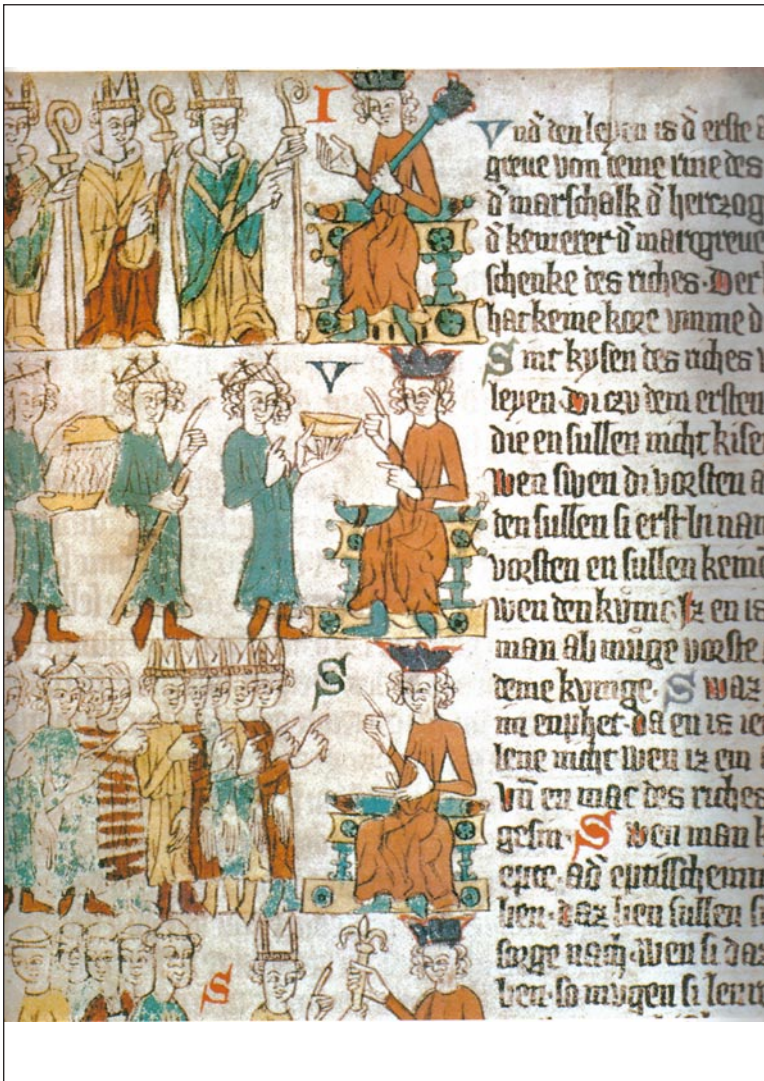 I
Vnd den leyen is d' erste
greue von deme rine des
d' marschalk d' hertzog
d' kemerer · d' marcgreue
schenke des riches · Der
har keme kore vmme d
V
Sint kysen des riches v
leyen · Di czv dem ersten
die en sullen nicht kise
wen swen di vorsten a
den sullen si erst · In nam
vorsten en sullen keme
wen den kvnic · Iz en is
man ab muge vorste
S
deme kvnige · Swaz
im enphet · da en is ie
lene nicht wen iz ein
Vn en mac des riches
gesin · Swen man k
epte · ad' eptisschenn
lien · daz lien sullen s
S
sorge nach · wen si daz
ben · so mvgen si lenr